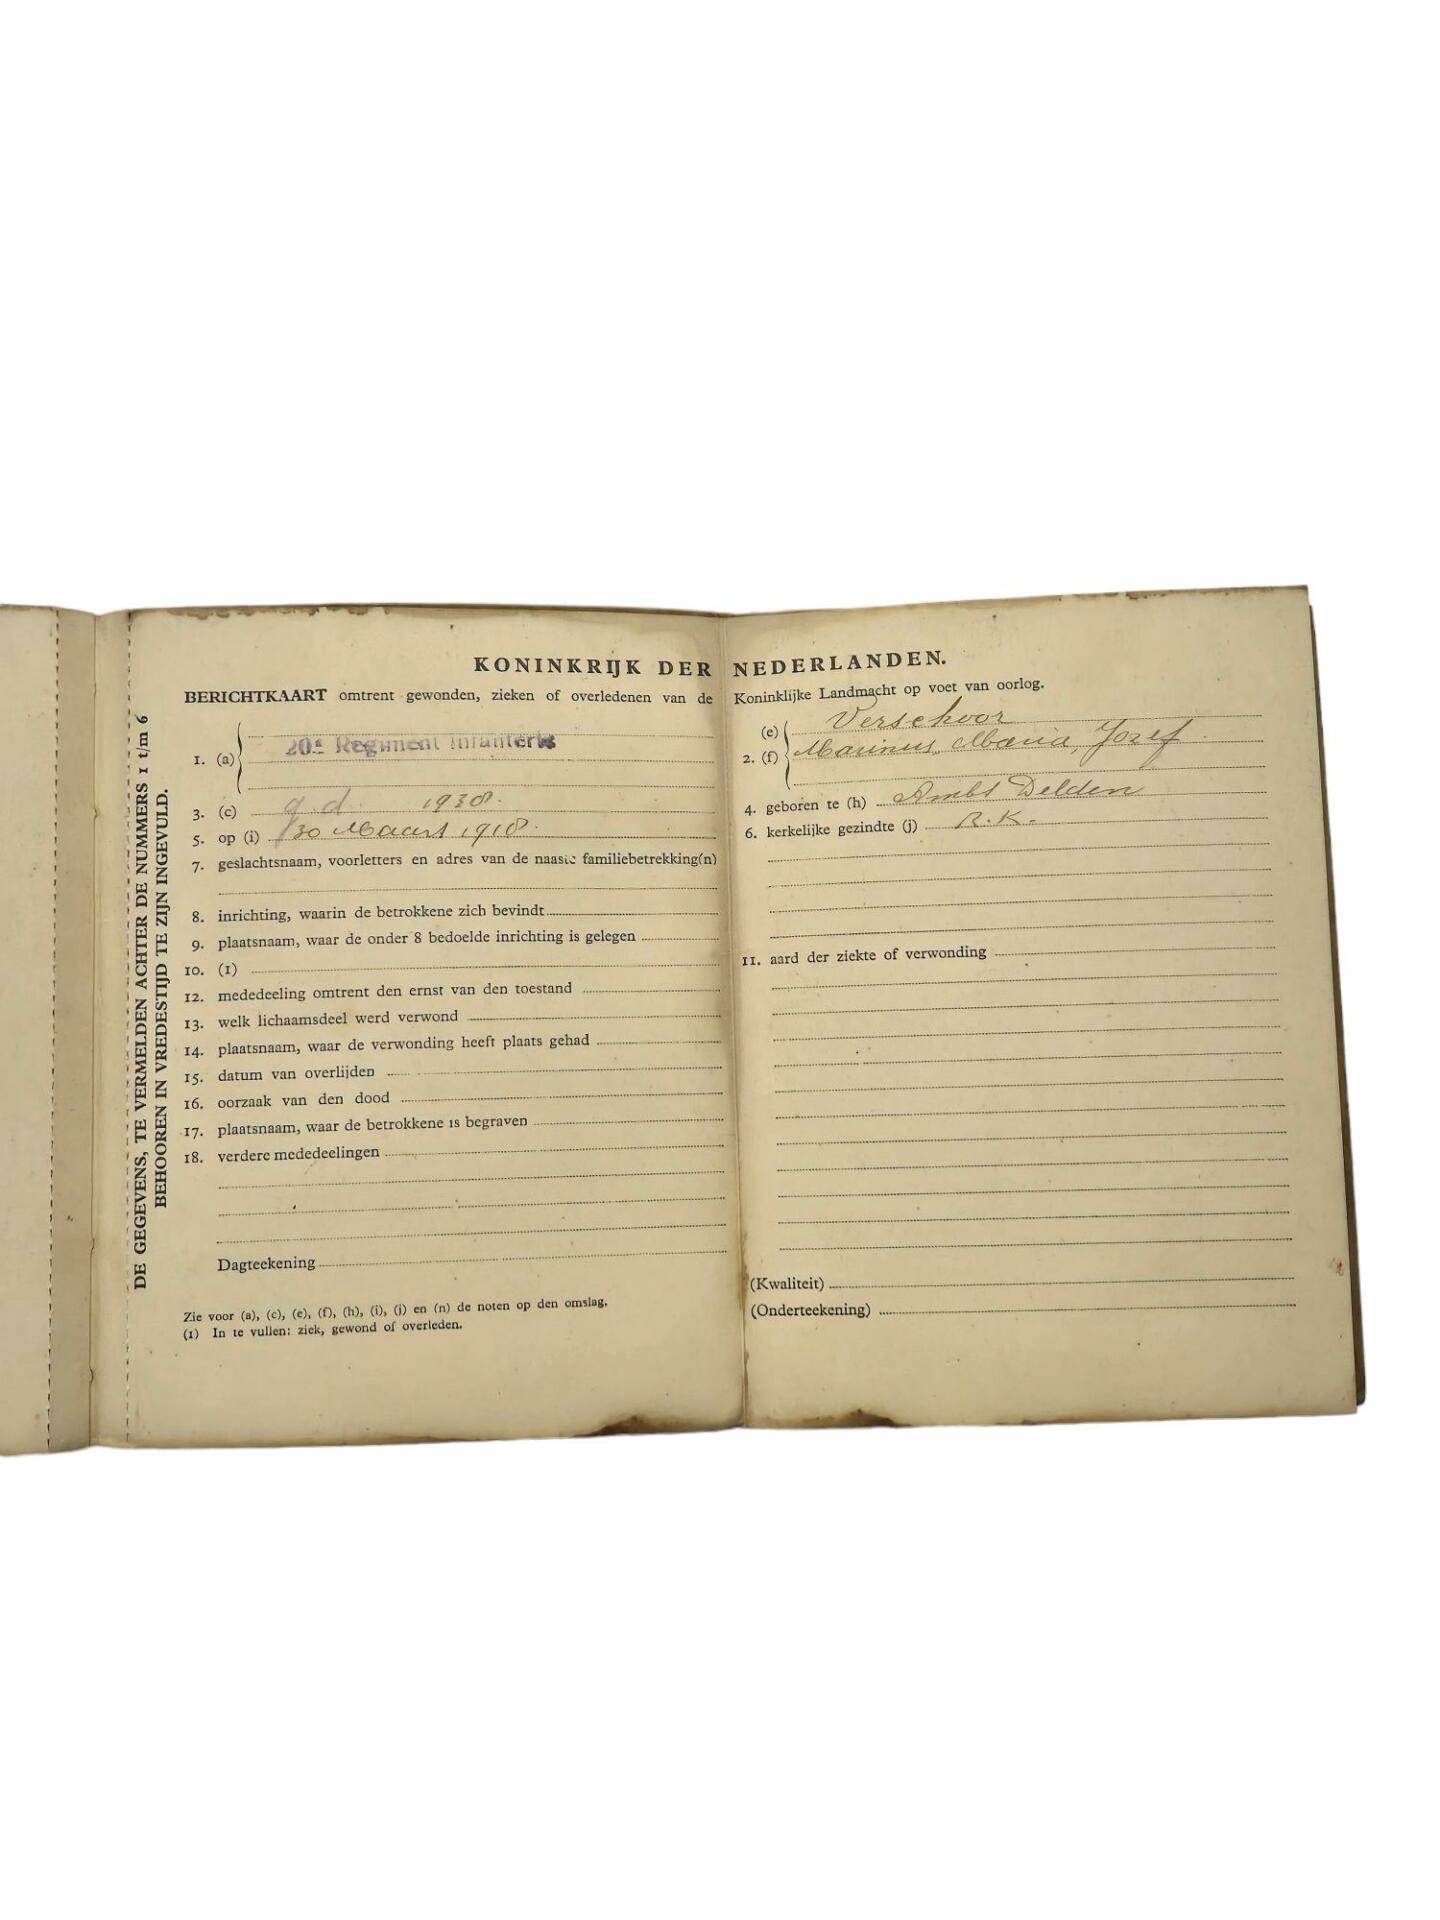 DE GEGEVENS, TE VERMELDEN ACHTER DE NUMMERS 1 t/m 6
BEHOOREN IN VREDESTIJD TE ZIJN INGEVULD.
KONINKRIJK DER NEDERLANDEN.
BERICHTKAART omtrent gewonden, zieken of overledenen van de Koninklijke Landmacht op voet van oorlog.
1. (a) 20e Regiment Infanterie
2. (e) Verschoor
(f) Marinus, Maria, Jozef.
3. (c) g.d. 1938.
4. geboren te (h) Ambt Delden
5. op (i) 30 Maart 1918.
6. kerkelijke gezindte (j) R.K.
7. geslachtsnaam, voorletters en adres van de naaste familiebetrekking(n)
8. inrichting, waarin de betrokkene zich bevindt
9. plaatsnaam, waar de onder 8 bedoelde inrichting is gelegen
10. (1)
11. aard der ziekte of verwonding
12. mededeeling omtrent den ernst van den toestand
13. welk lichaamsdeel werd verwond
14. plaatsnaam, waar de verwonding heeft plaats gehad
15. datum van overlijden
16. oorzaak van den dood
17. plaatsnaam, waar de betrokkene is begraven
18. verdere mededeelingen
Dagteekening
(Kwaliteit)
(Onderteekening)
Zie voor (a), (c), (e), (f), (h), (i), (j) en (n) de noten op den omslag.
(1) In te vullen: ziek, gewond of overleden.